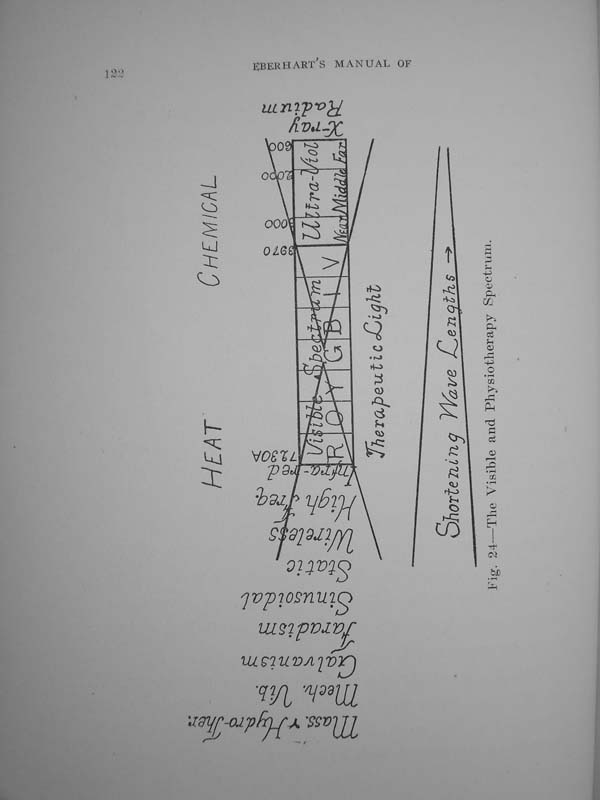 122
EBERHART'S MANUAL OF
HEAT
CHEMICAL
Mass. & Hydro-Ther.
Mech. Vib.
Galvanism
Faradism
Sinusoidal
Static
Wireless
High Freq.
Infra-red
7230A
3970
3000
2000
600
X-ray
Radium
Visible Spectrum
R O Y G B I V
Ultra-Viol
Near Middle Far
Therapeutic Light
Shortening Wave Lengths →
Fig. 24—The Visible and Physiotherapy Spectrum.